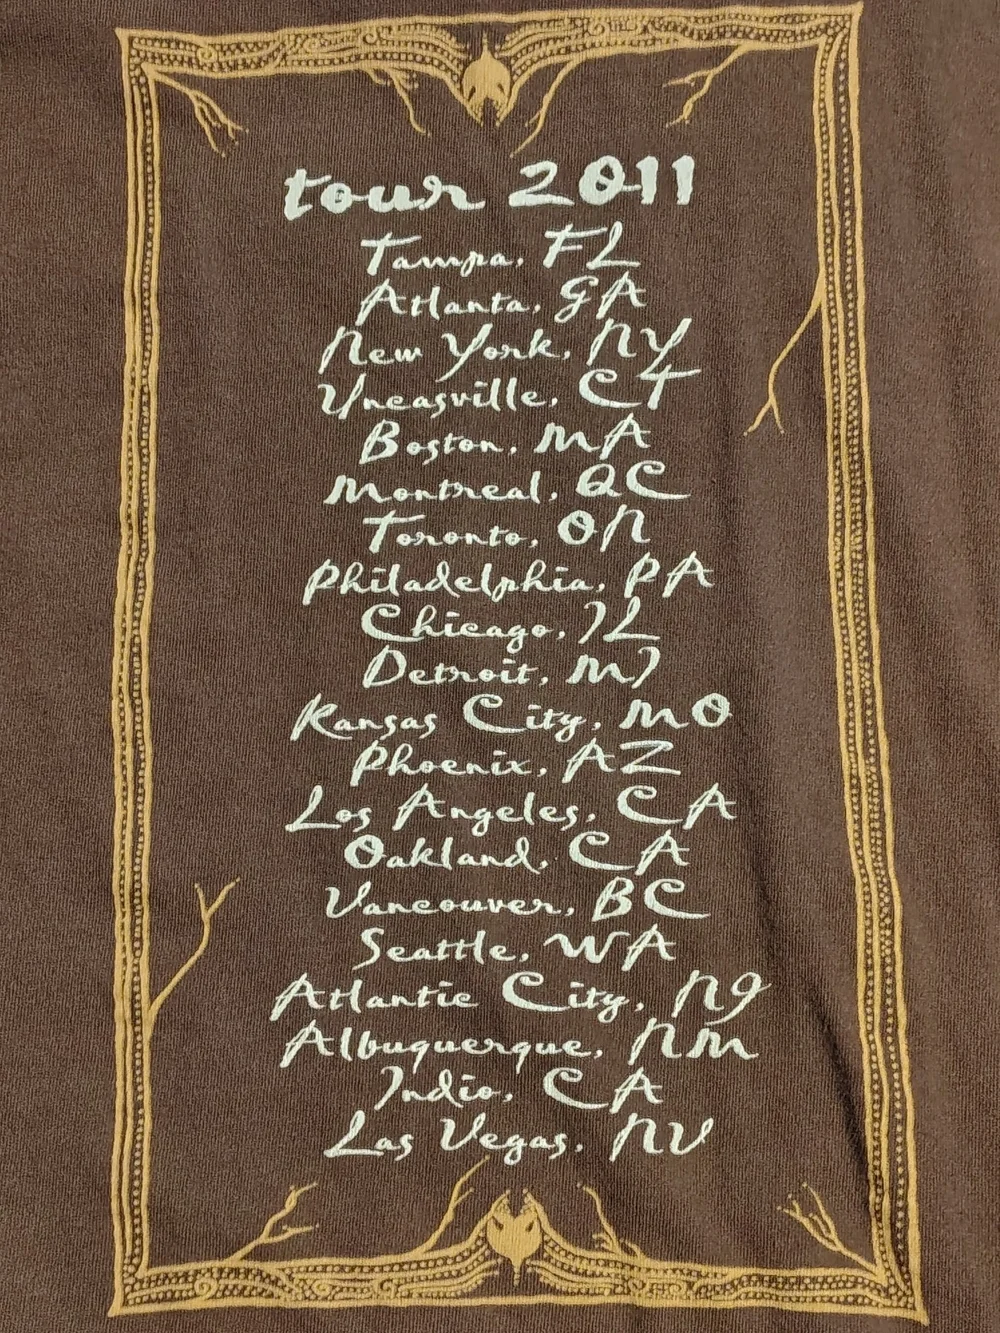 tour 2011
Tampa, FL
Atlanta, GA
New York, NY
Uncasville, CT
Boston, MA
Montreal, QC
Toronto, ON
Philadelphia, PA
Chicago, IL
Detroit, MI
Kansas City, MO
Phoenix, AZ
Los Angeles, CA
Oakland, CA
Vancouver, BC
Seattle, WA
Atlantic City, NJ
Albuquerque, NM
Indio, CA
Las Vegas, NV